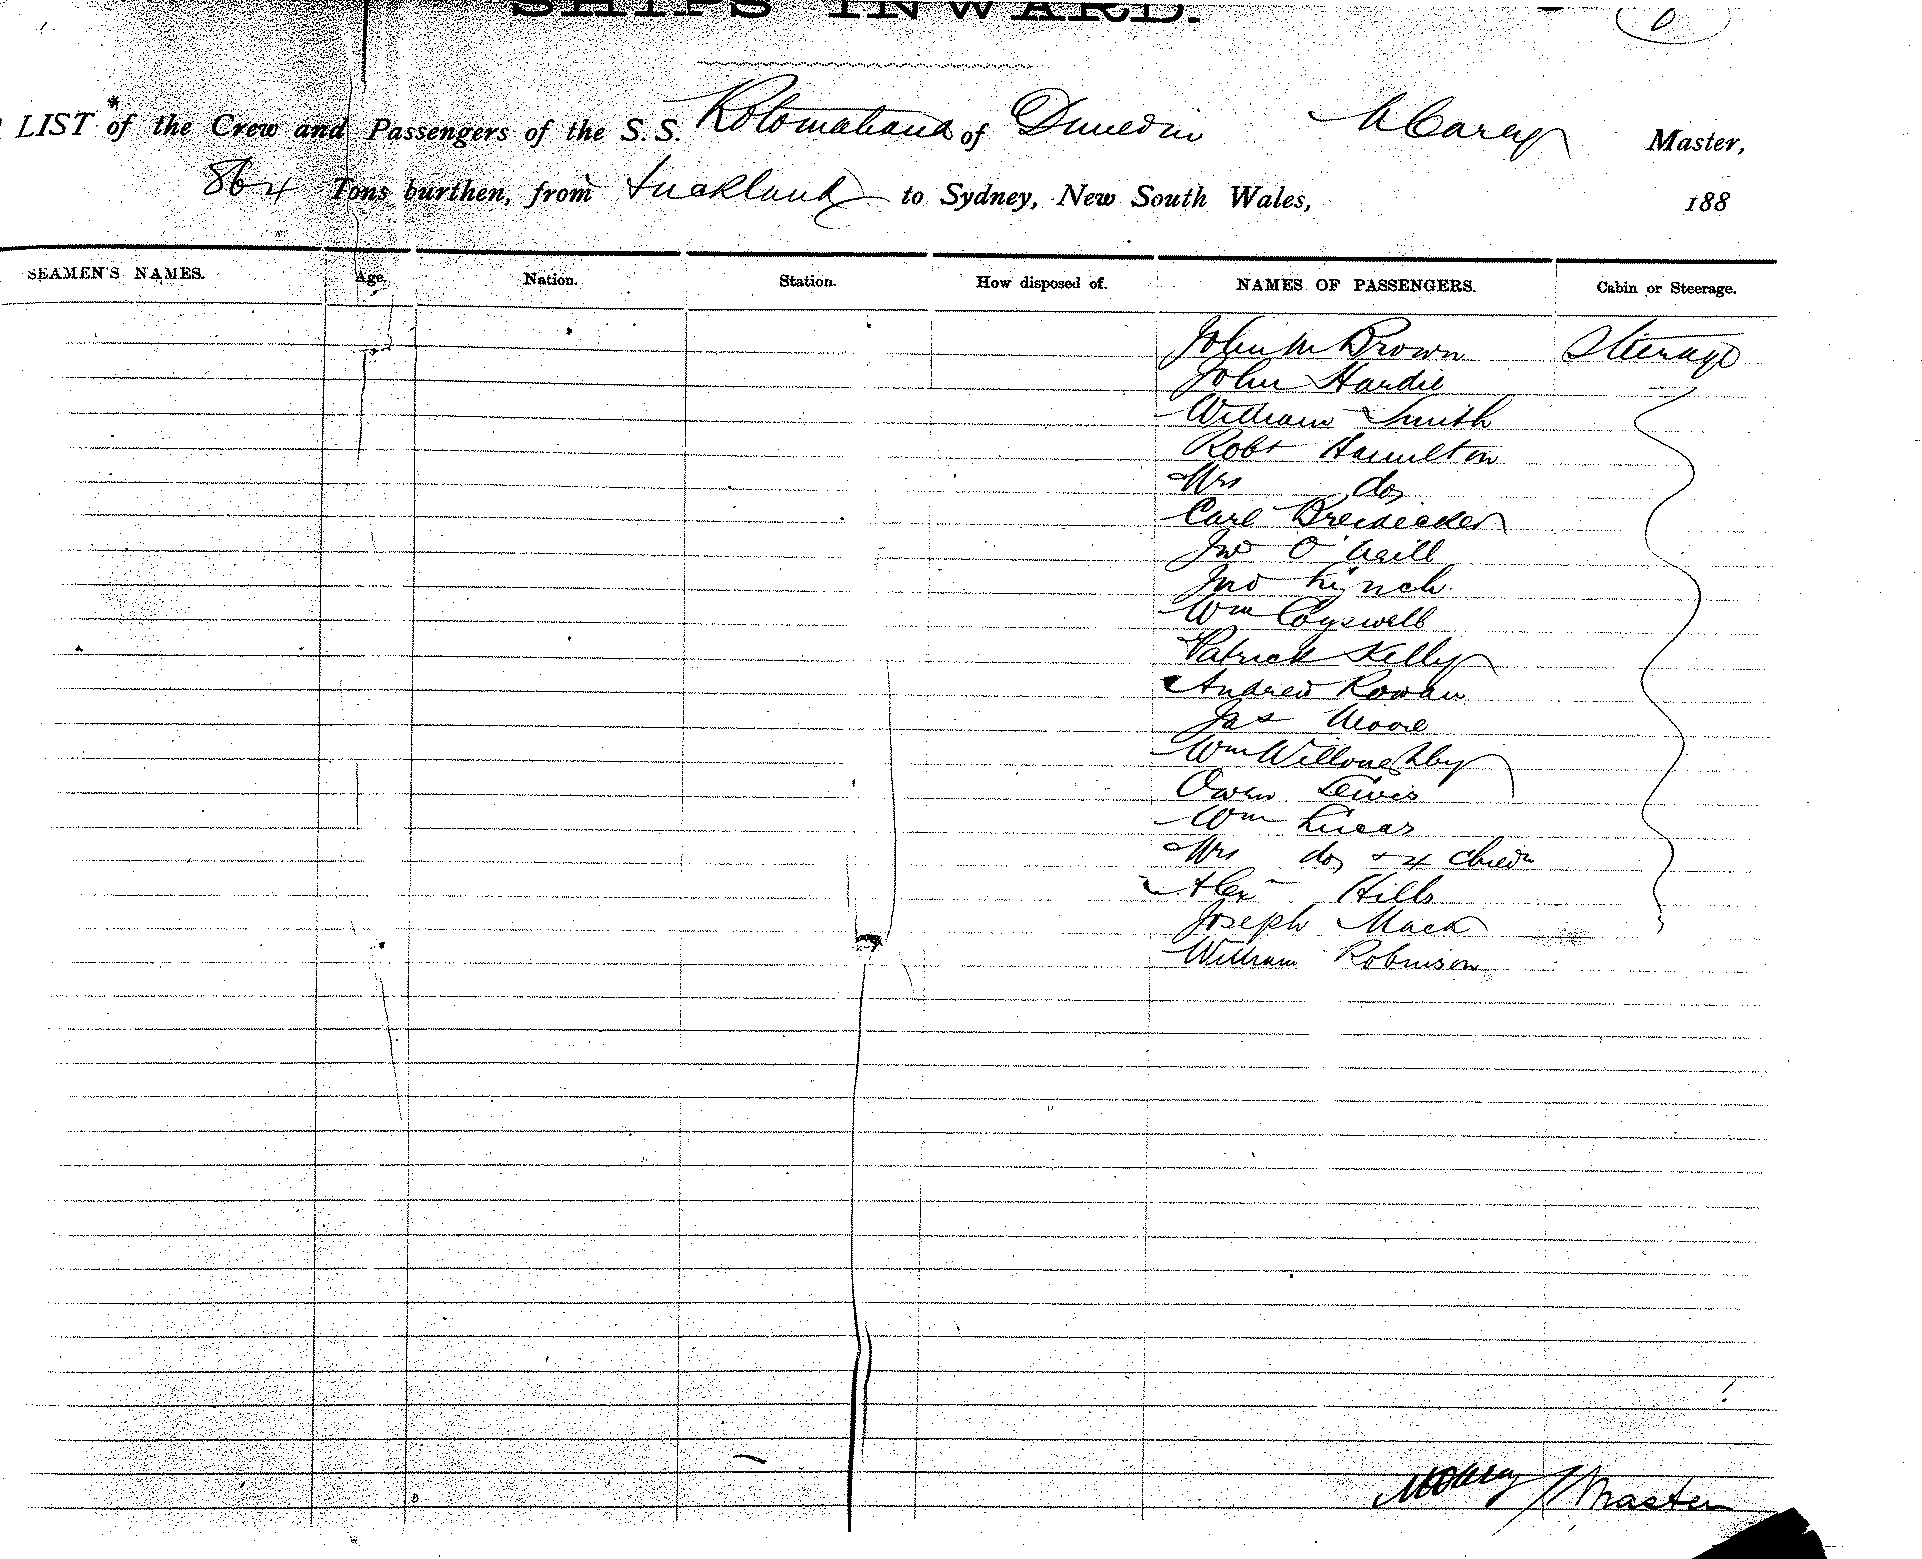 SHIPS INWARD.
6
LIST * of the Crew and Passengers of the S.S. Rotomahana of Dunedin M Carey Master,
864 Tons burthen, from Auckland to Sydney, New South Wales, 188
SEAMEN'S NAMES. Age. Nation. Station. How disposed of. NAMES OF PASSENGERS. Cabin or Steerage.
John M Brown Steerage
John Hardie
William Smith
Robt Hamilton
Mrs do
Carl Breidecker
Jno O'Neill
Jno Lynch
Wm Cogswell
Patrick Kelly
Andrew Rowan
Jas Moore
Wm Willoughby
Owen Lewis
Wm Lucas
Mrs do + 4 childn
Alex Hills
Joseph Mack
William Robinson
M Carey Master